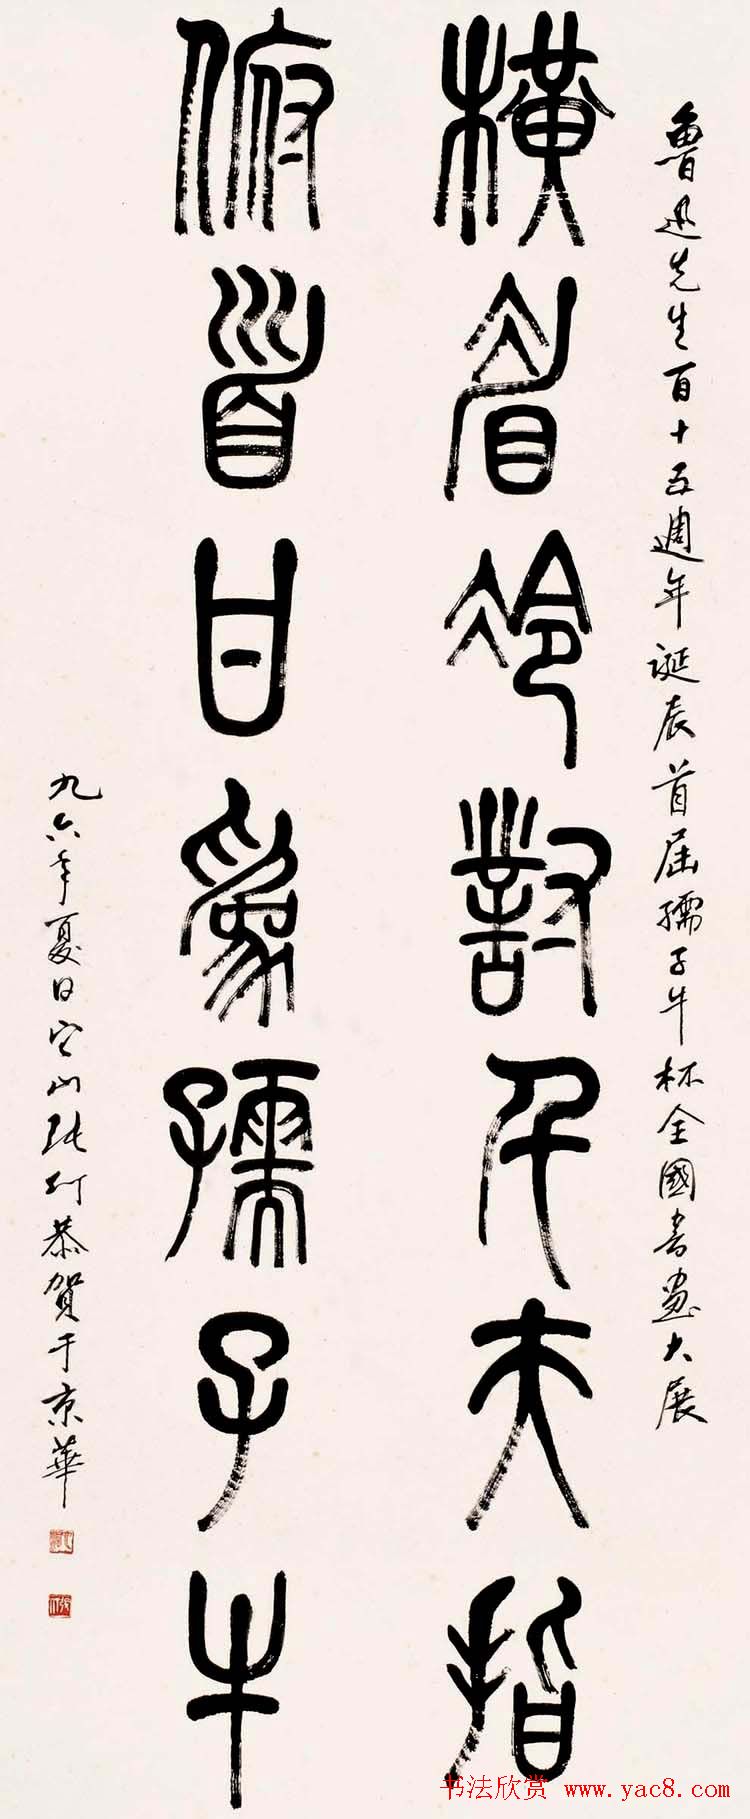 魯迅先生百十五週年誕辰首屆孺子牛杯全國書畫大展
橫眉冷對千夫指
俯首甘爲孺子牛
九六年夏日它山張仃恭賀于京華
书法欣赏 www.yac8.com